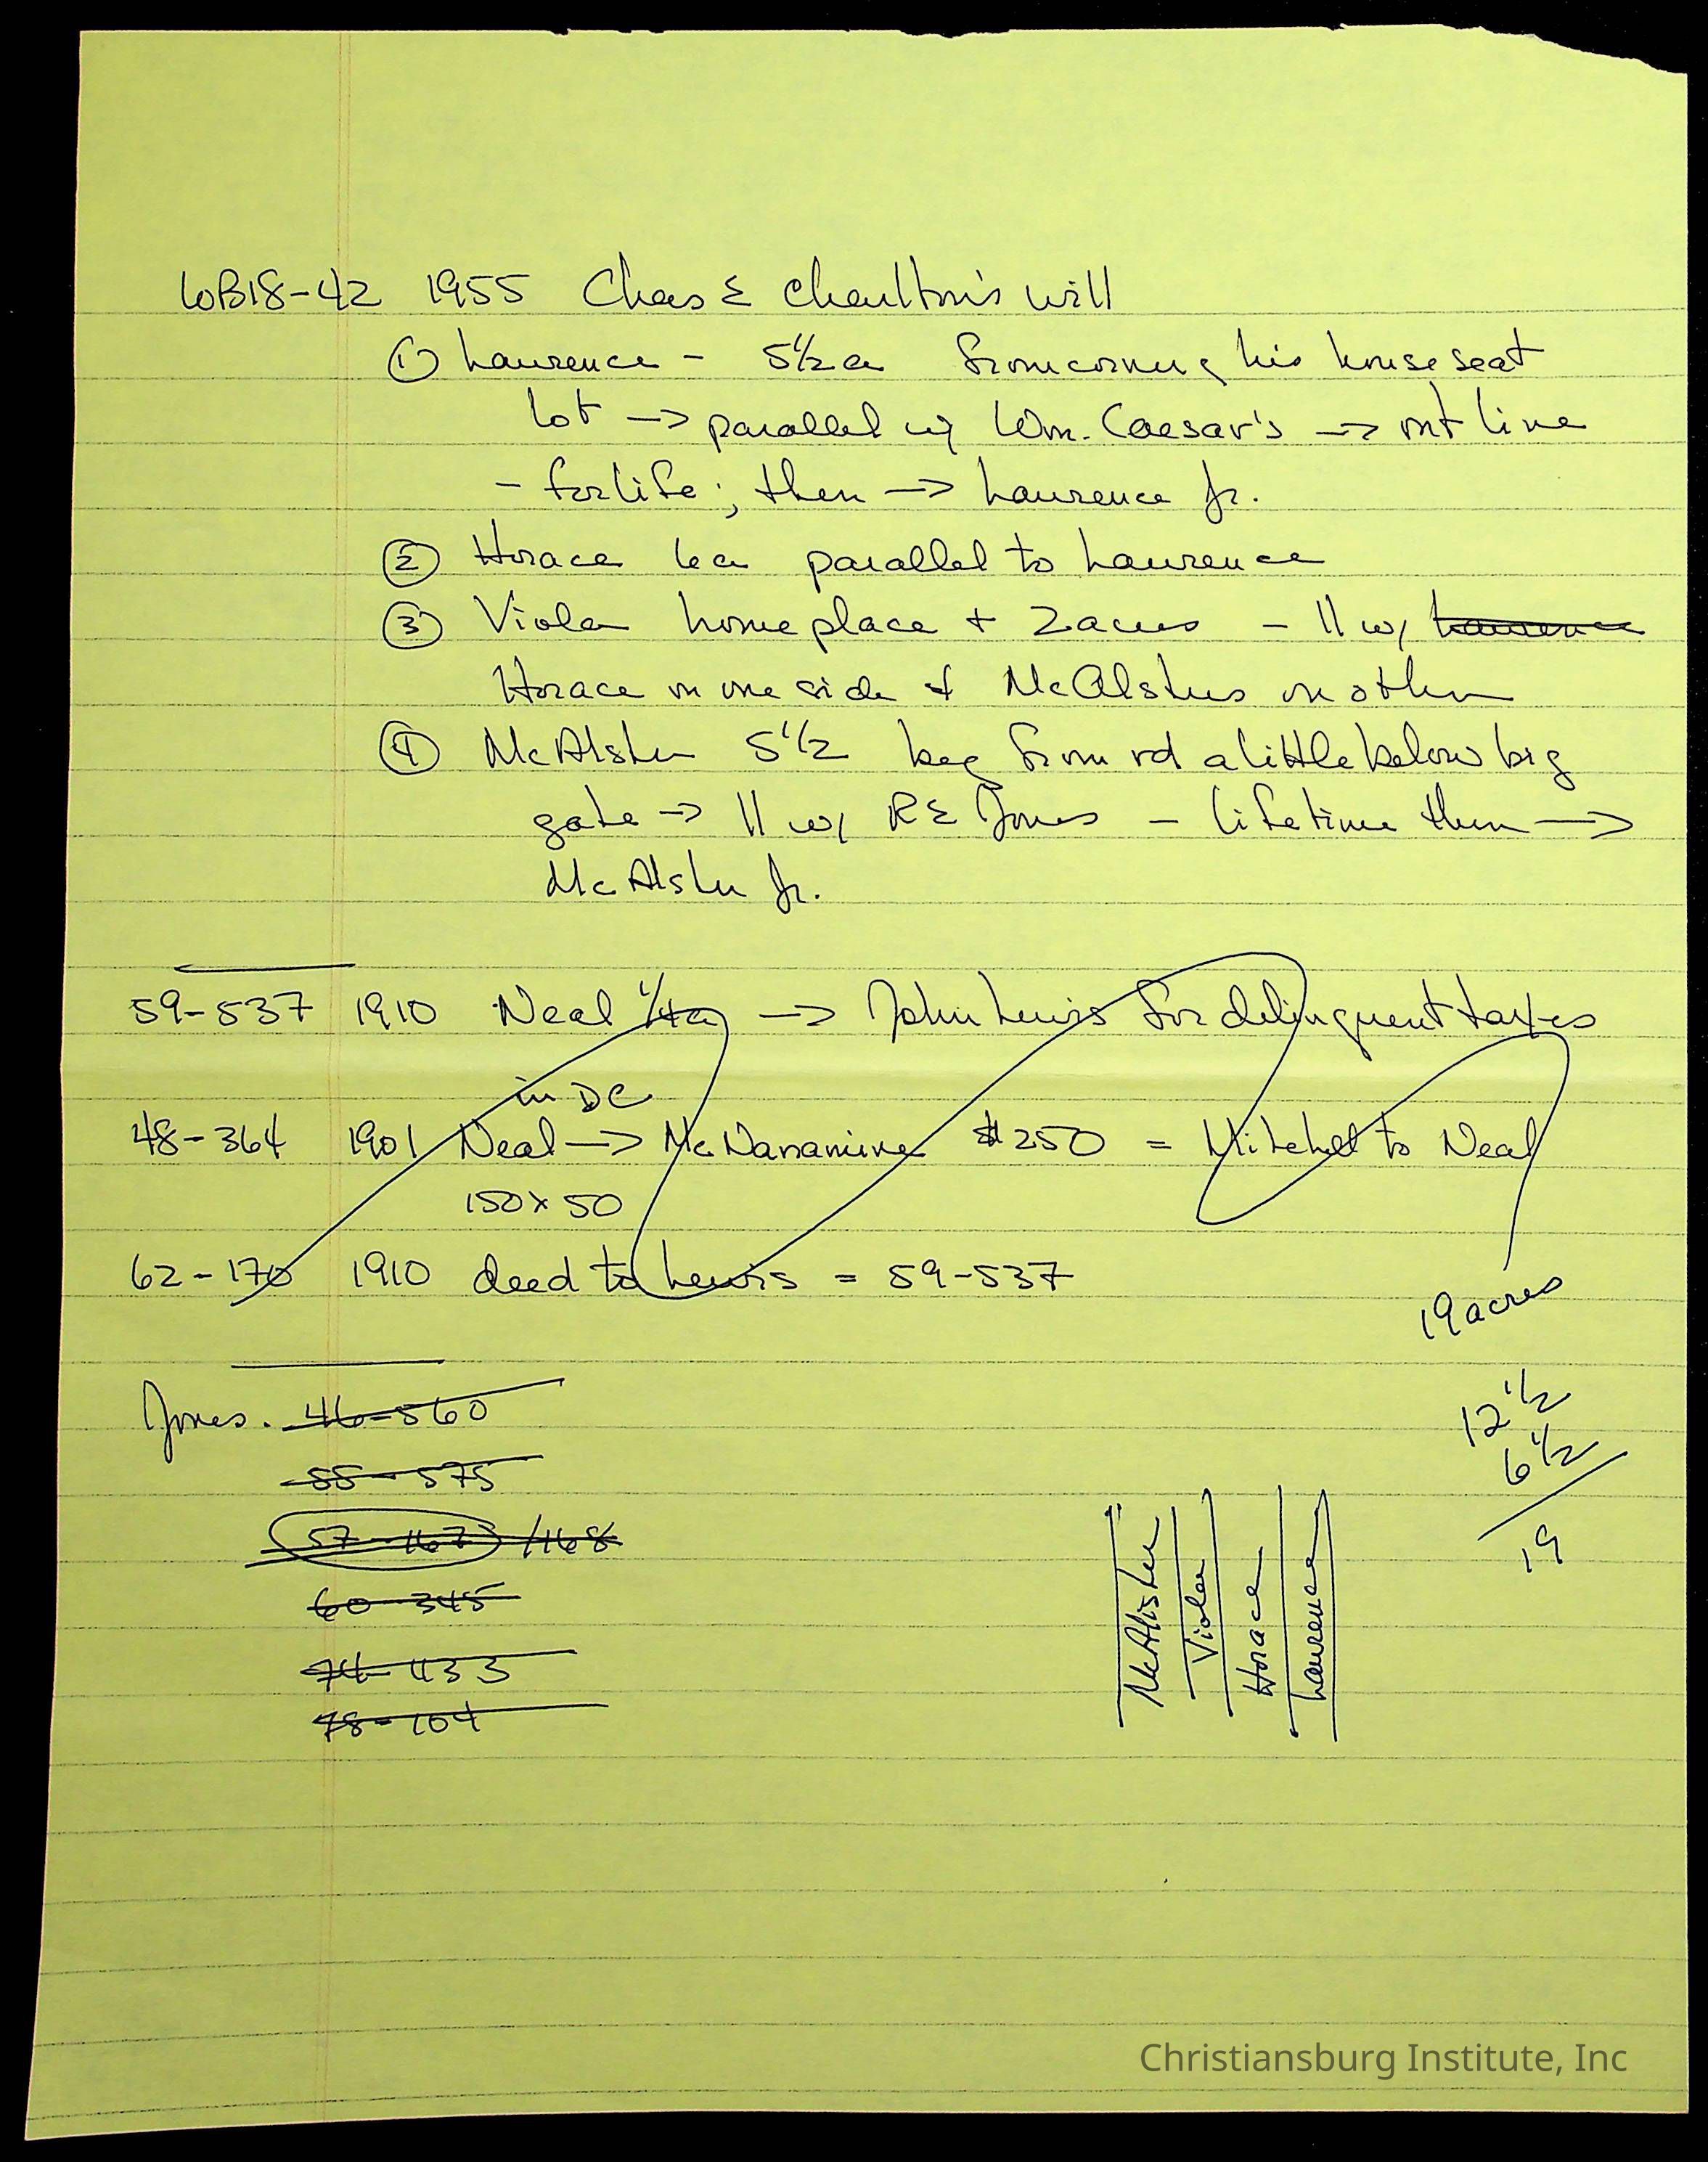 WB18-42 1955 Chas E Charlton's will
① Laurence - 5½ a from corner of his house seat
lot → parallel w/ Wm. Caesar's → mt line
- for life; then → Laurence Jr.
② Horace 6a parallel to Laurence
③ Viola homeplace + 2 acres - || w/ Laurence
Horace on one side & McAlsters on other
④ McAlster 5½ beg from rd a little below big
gate → || w/ RE Jones - lifetime then →
McAlster Jr.
59-537 1910 Neal 1/4a → John Lewis for delinquent taxes
in DC
48-364 1901 Neal → McNanamine $250 = Mitchell to Neal
150x50
62-170 1910 deed to Lewis = 59-537
19 acres
Jones. 46-560
55-575
57-167 /168
60-345
74-433
78-104
12½
6½
19
McAllister
Viola
Horace
Laurence
Christiansburg Institute, Inc